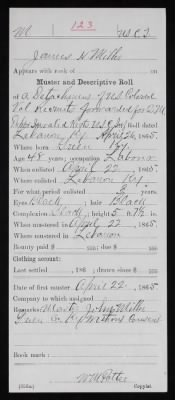 M 123 U.S.C.T.
James H Miller
Appears with rank of
Muster and Descriptive Roll
of a Detachment of U.S. Colored
Vol Recruits forwarded for
Roll dated
Lebanon, Ky. April 26, 1865.
Where born Green Ky.
Age 48 years; occupation Laborer
When enlisted April 22, 1865.
Where enlisted Lebanon Ky.
For what period enlisted 3 years.
Eyes Black; hair Black
Complexion Black; height 5 ft. 7½ in.
When mustered in April 22, 1865.
Where mustered in Lebanon
Bounty paid $ 100; due $ 100
Clothing account:
Last settled , 186 ; drawn since $ 100
Date of first muster April 22, 1865.
Company to which assigned
Remarks: Master John Miller
Green Co Ky Without Consent
Book mark:
W W Potter
Copyist.